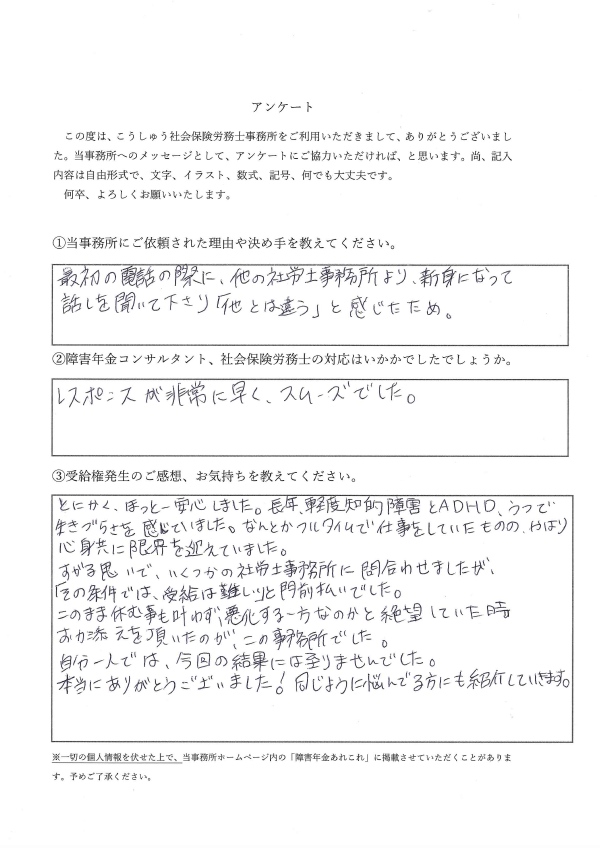 アンケート
この度は、こうしゅう社会保険労務士事務所をご利用いただきまして、ありがとうございまし
た。当事務所へのメッセージとして、アンケートにご協力いただければ、と思います。尚、記入
内容は自由形式で、文字、イラスト、数式、記号、何でも大丈夫です。
何卒、よろしくお願いいたします。
①当事務所にご依頼された理由や決め手を教えてください。
最初の電話の際に、他の社労士事務所より、新身になって
話しを聞いて下さり「他とは違う」と感じたため。
②障害年金コンサルタント、社会保険労務士の対応はいかかでしたでしょうか。
レスポンスが非常に早く、スムーズでした。
③受給権発生のご感想、お気持ちを教えてください。
とにかく、ほっと一安心しました。長年、軽度知的障害とADHD、うつで
生きづらさを感じていました。なんとかフルタイムで仕事をしていたものの、やはり
心身共に限界を迎えていました。
すがる思いで、いくつかの社労士事務所に問合わせましたが、
「その条件では、受給は難しい」と門前払いでした。
このまま休む事も叶わず、悪化する一方なのかと絶望していた時
お力添えを頂いたのが、この事務所でした。
自分一人では、今回の結果には至りませんでした。
本当にありがとうございました！同じように悩んでる方にも紹介していきます。
※一切の個人情報を伏せた上で、当事務所ホームページ内の「障害年金あれこれ」に掲載させていただくことがありま
す。予めご了承ください。